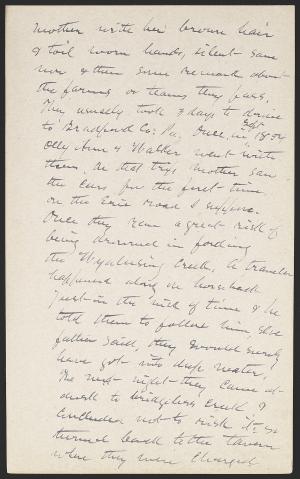 mother with her brown hair
& toil worn hands, silent save
now & then some remark about
the farms or teams they pass.
They usually took 3 days to drive
to Bradford Co. Pa. Once, in 1854
Olly Ann & Walter went with
them. On that trip mother saw
the cars for the first time
on the Erie road I suppose.
Once they ran a great risk of
being drowned in fording
the Wyalusing Creek. A traveler
happened along on horseback
just in the nick of time & he
told them to follow him, else
father said, they would surely
have got into deep water.
The next night they came at
dusk to bridgeless creek &
concluded not to risk it so
turned back to the tavern
where they were charged